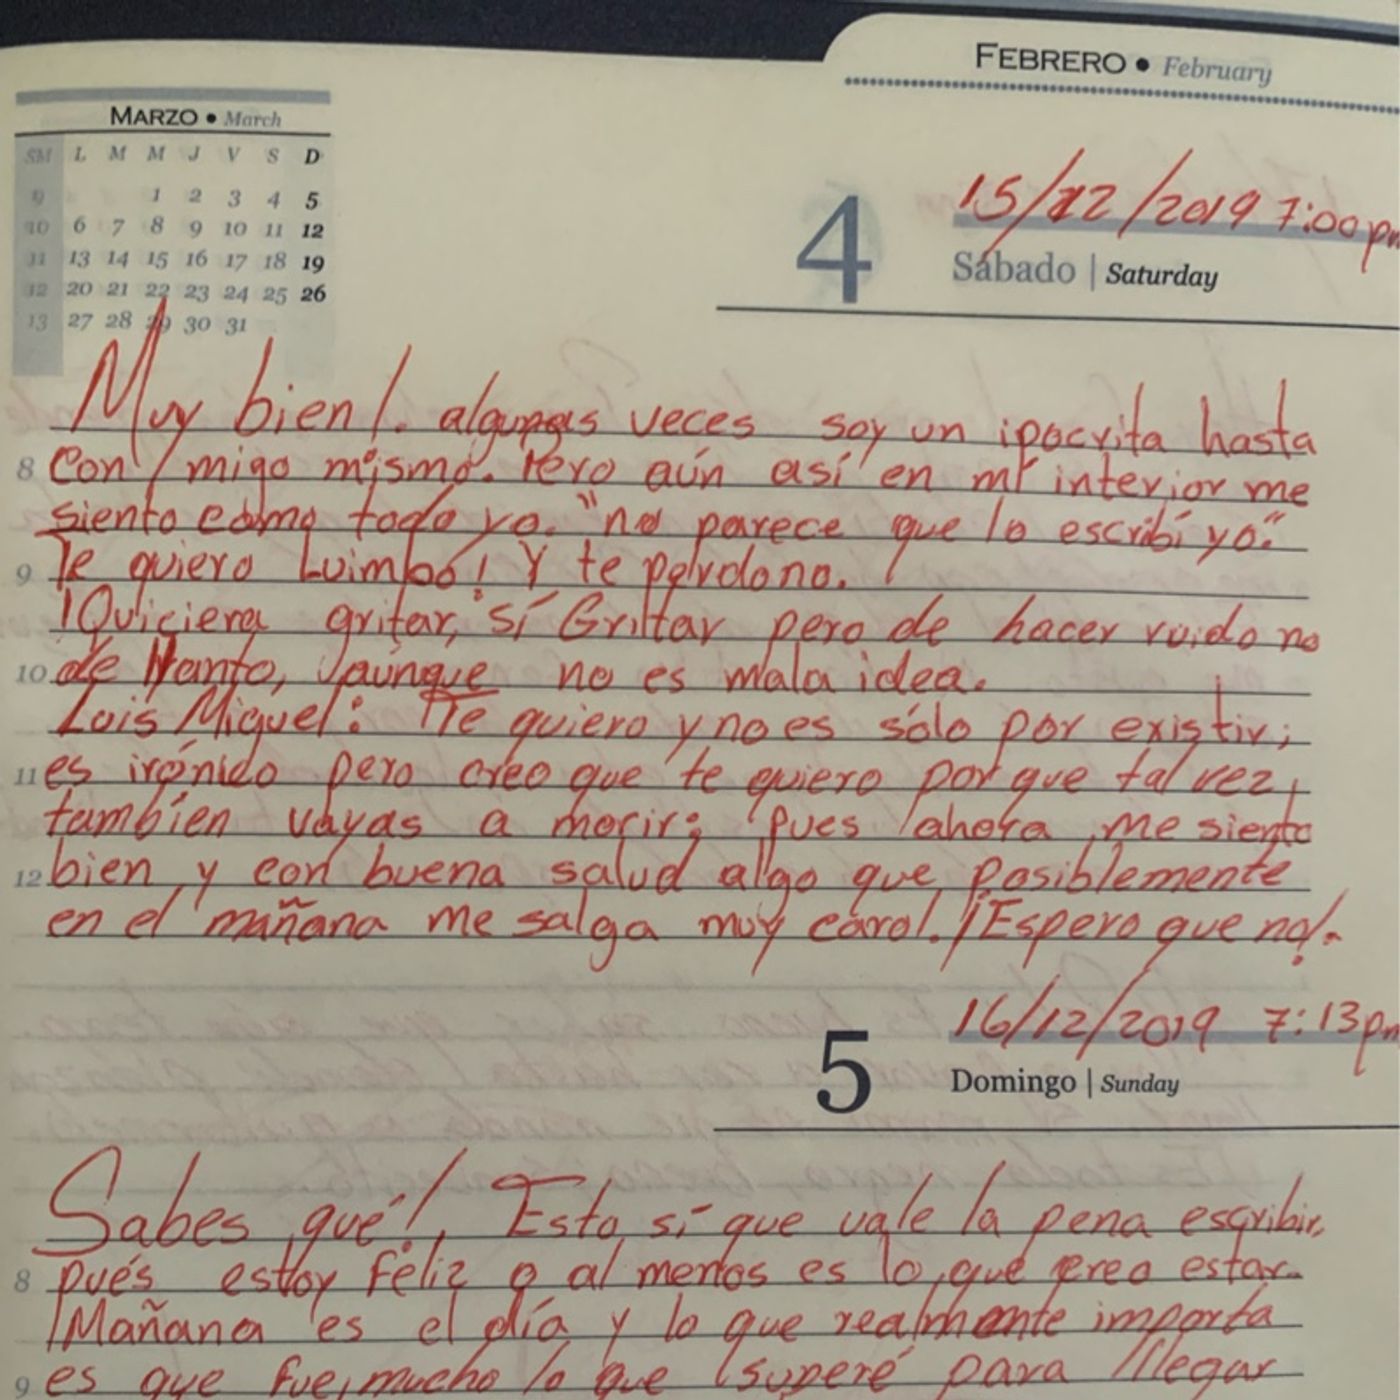 FEBRERO • February
MARZO • March
SM L M M J V S D
9 1 2 3 4 5
10 6 7 8 9 10 11 12
11 13 14 15 16 17 18 19
12 20 21 22 23 24 25 26
13 27 28 29 30 31
4 15/12/2019 7:00pm
Sábado | Saturday
Muy bien!. algunas veces soy un ipocrita hasta
8 con migo mismo. Pero aún así en mi interior me
siento como todo yo. "no parece que lo escribí yo."
9 Te quiero Luimbo! Y te perdono.
¡Quiciera gritar, sí Gritar pero de hacer ruido no
10 de llanto, aunque no es mala idea.
Luis Miguel: Te quiero y no es sólo por existir;
11 es irónico pero creo que te quiero porque tal vez,
también vayas a morir; pues ahora me siento
12 bien y con buena salud algo que posiblemente
en el mañana me salga muy caro!. ¡Espero que no!.
5 16/12/2019 7:13pm
Domingo | Sunday
Sabes qué!, Esto sí que vale la pena escribir,
8 pués estoy feliz o al menos es lo que creo estar.
Mañana es el día y lo que realmente importa
9 es que fue mucho lo que superé para llegar